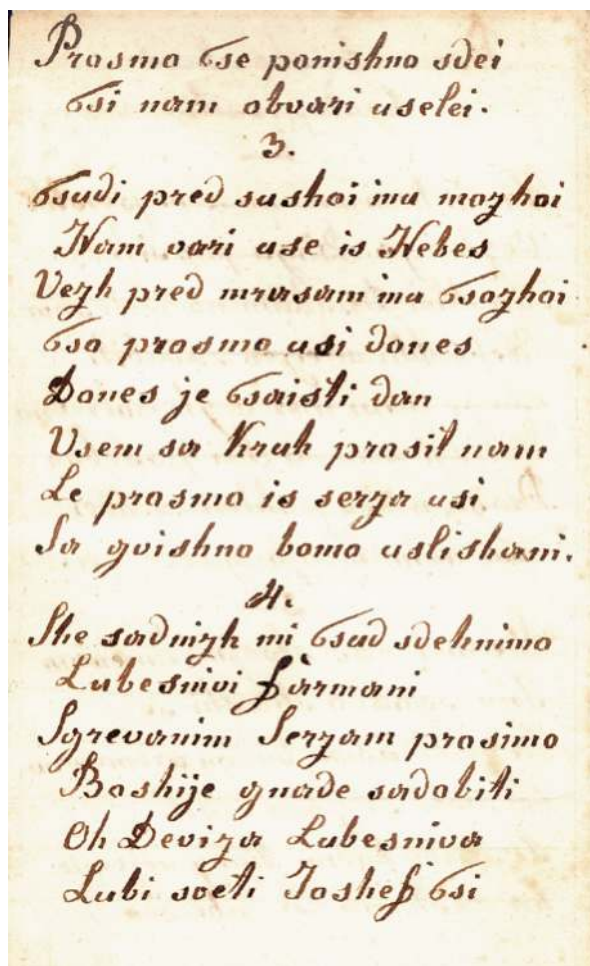 Prosmo Te ponishno sdei
Ti nam obvari uselei.
3.
Tudi pred sushoi inu mozhoi
Nam vari use is Nebes
Vezh pred mrasam inu Tozhoi
To prosmo usi dones
Dones je Taisti dan
Usem sa Kruh prosit nam
Le prosmo is serza usi
Sa gvishno bomo uslishani.
4.
She sadnizh mi Tud sdehnimo
Lubesnivi Farmani
Sgrevanim Serzam prosimo
Boshije gnade sadobiti
Oh Deviza Lubesniva
Lubi sveti Joshef Ti